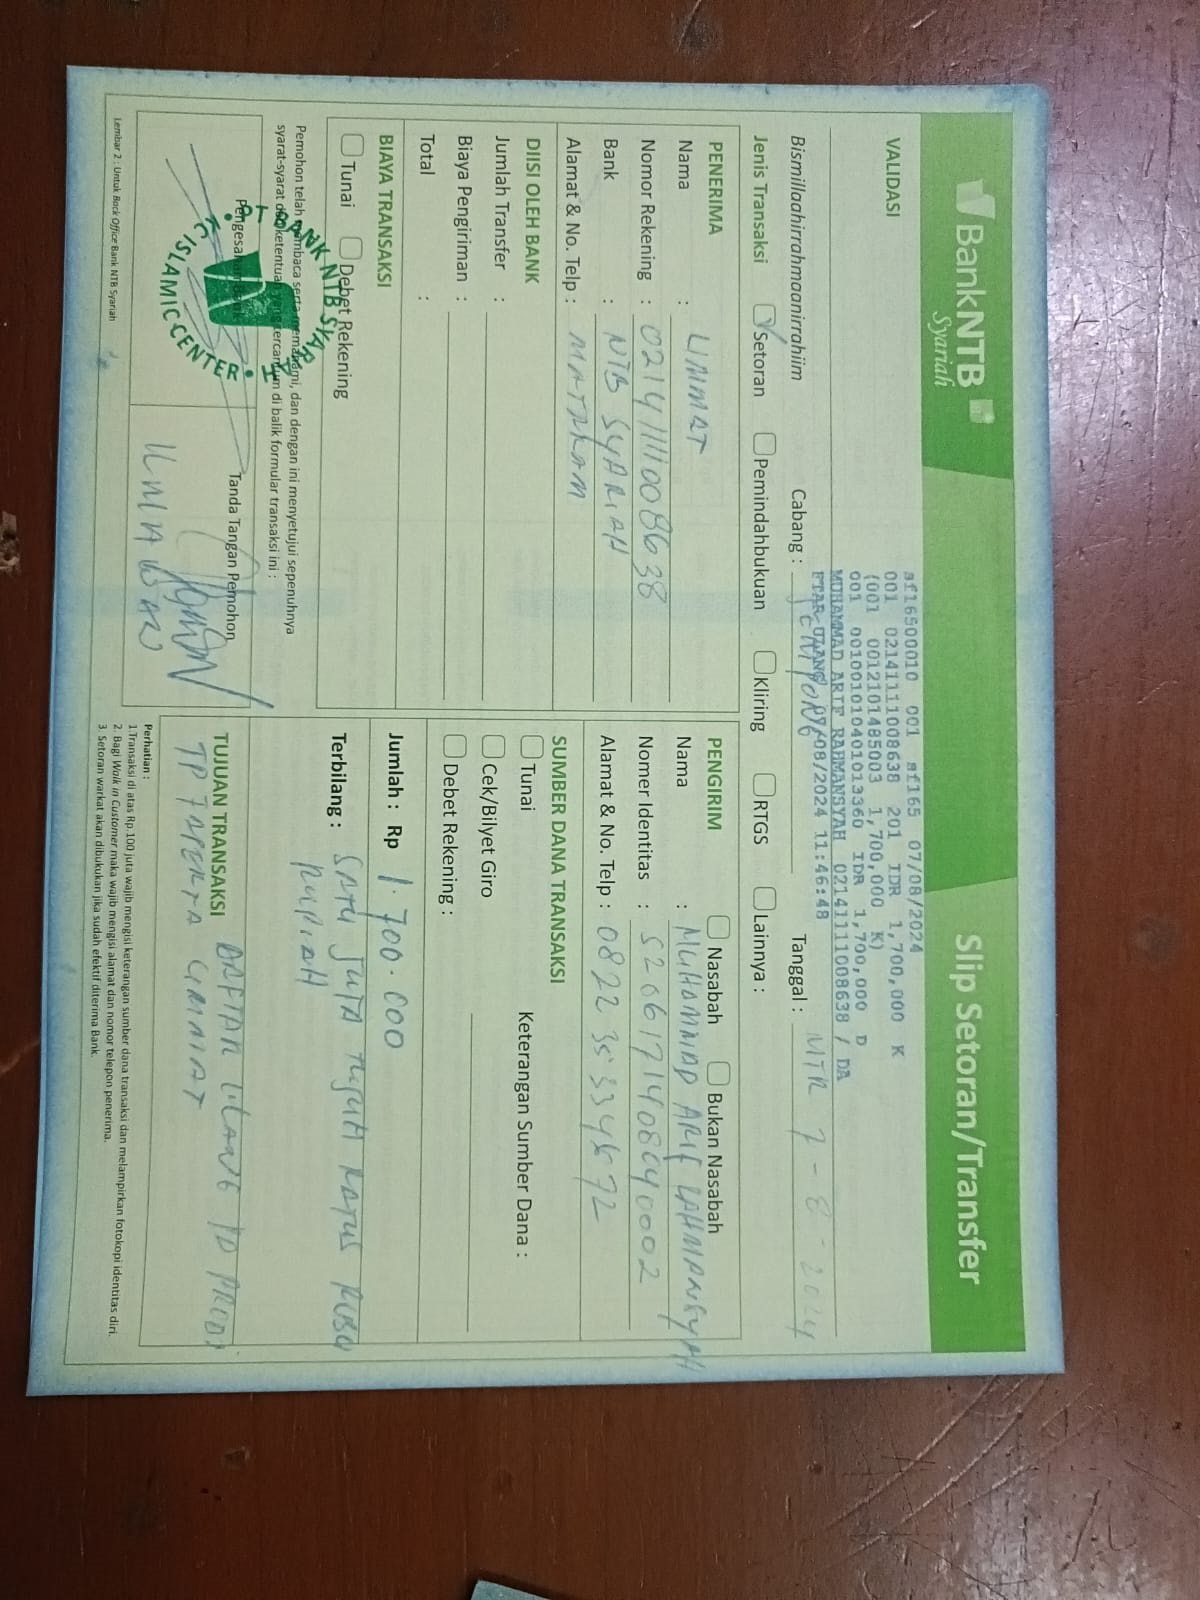 BankNTB
Syariah
Slip Setoran/Transfer
VALIDASI
af16500010 001 af165 07/08/2024
001 02141111008638 201 IDR 1,700,000 K
(001 0012101485003 1,700,000 K)
001 001001010401013360 IDR 1,700,000 D
MUHAMMAD ARIF RAHMANSYAH 02141111008638 / DA
FTAR ULANG 07/08/2024 11:46:48
Bismillaahirrahmaanirrahiim
Cabang :
Tanggal : MTR 7 - 8 - 2024
Jenis Transaksi Setoran Pemindahbukuan Kliring RTGS Lainnya :
PENERIMA
Nama : UMMAT
Nomor Rekening : 0214111100 8638
Bank : NTB SYARIAH
Alamat & No. Telp : MATARAM
PENGIRIM Nasabah Bukan Nasabah
Nama : MUHAMMAD ARIF RAHMANSYAH
Nomer Identitas :
Alamat & No. Telp :
DIISI OLEH BANK
Jumlah Transfer :
Biaya Pengiriman :
Total :
SUMBER DANA TRANSAKSI
Tunai Keterangan Sumber Dana :
Cek/Bilyet Giro
Debet Rekening :
BIAYA TRANSAKSI
Tunai Debet Rekening
Jumlah : Rp 1.700.000
Terbilang : SATU JUTA TUJUH RATUS RIBU
RUPIAH
Pemohon telah membaca serta memahami, dan dengan ini menyetujui sepenuhnya
syarat-syarat dan ketentuan yang tercantum di balik formular transaksi ini :
Pengesahan Bank
PT BANK NTB SYARIAH
KC ISLAMIC CENTER
Tanda Tangan Pemohon
TUJUAN TRANSAKSI DAFTAR ULANG
Perhatian :
1.Transaksi di atas Rp.100 juta wajib mengisi keterangan sumber dana transaksi dan melampirkan fotokopi identitas diri.
2. Bagi Walk in Customer maka wajib mengisi alamat dan nomor telepon penerima.
3. Setoran warkat akan dibukukan jika sudah efektif diterima Bank.
Lembar 2 : Untuk Back Office Bank NTB Syariah